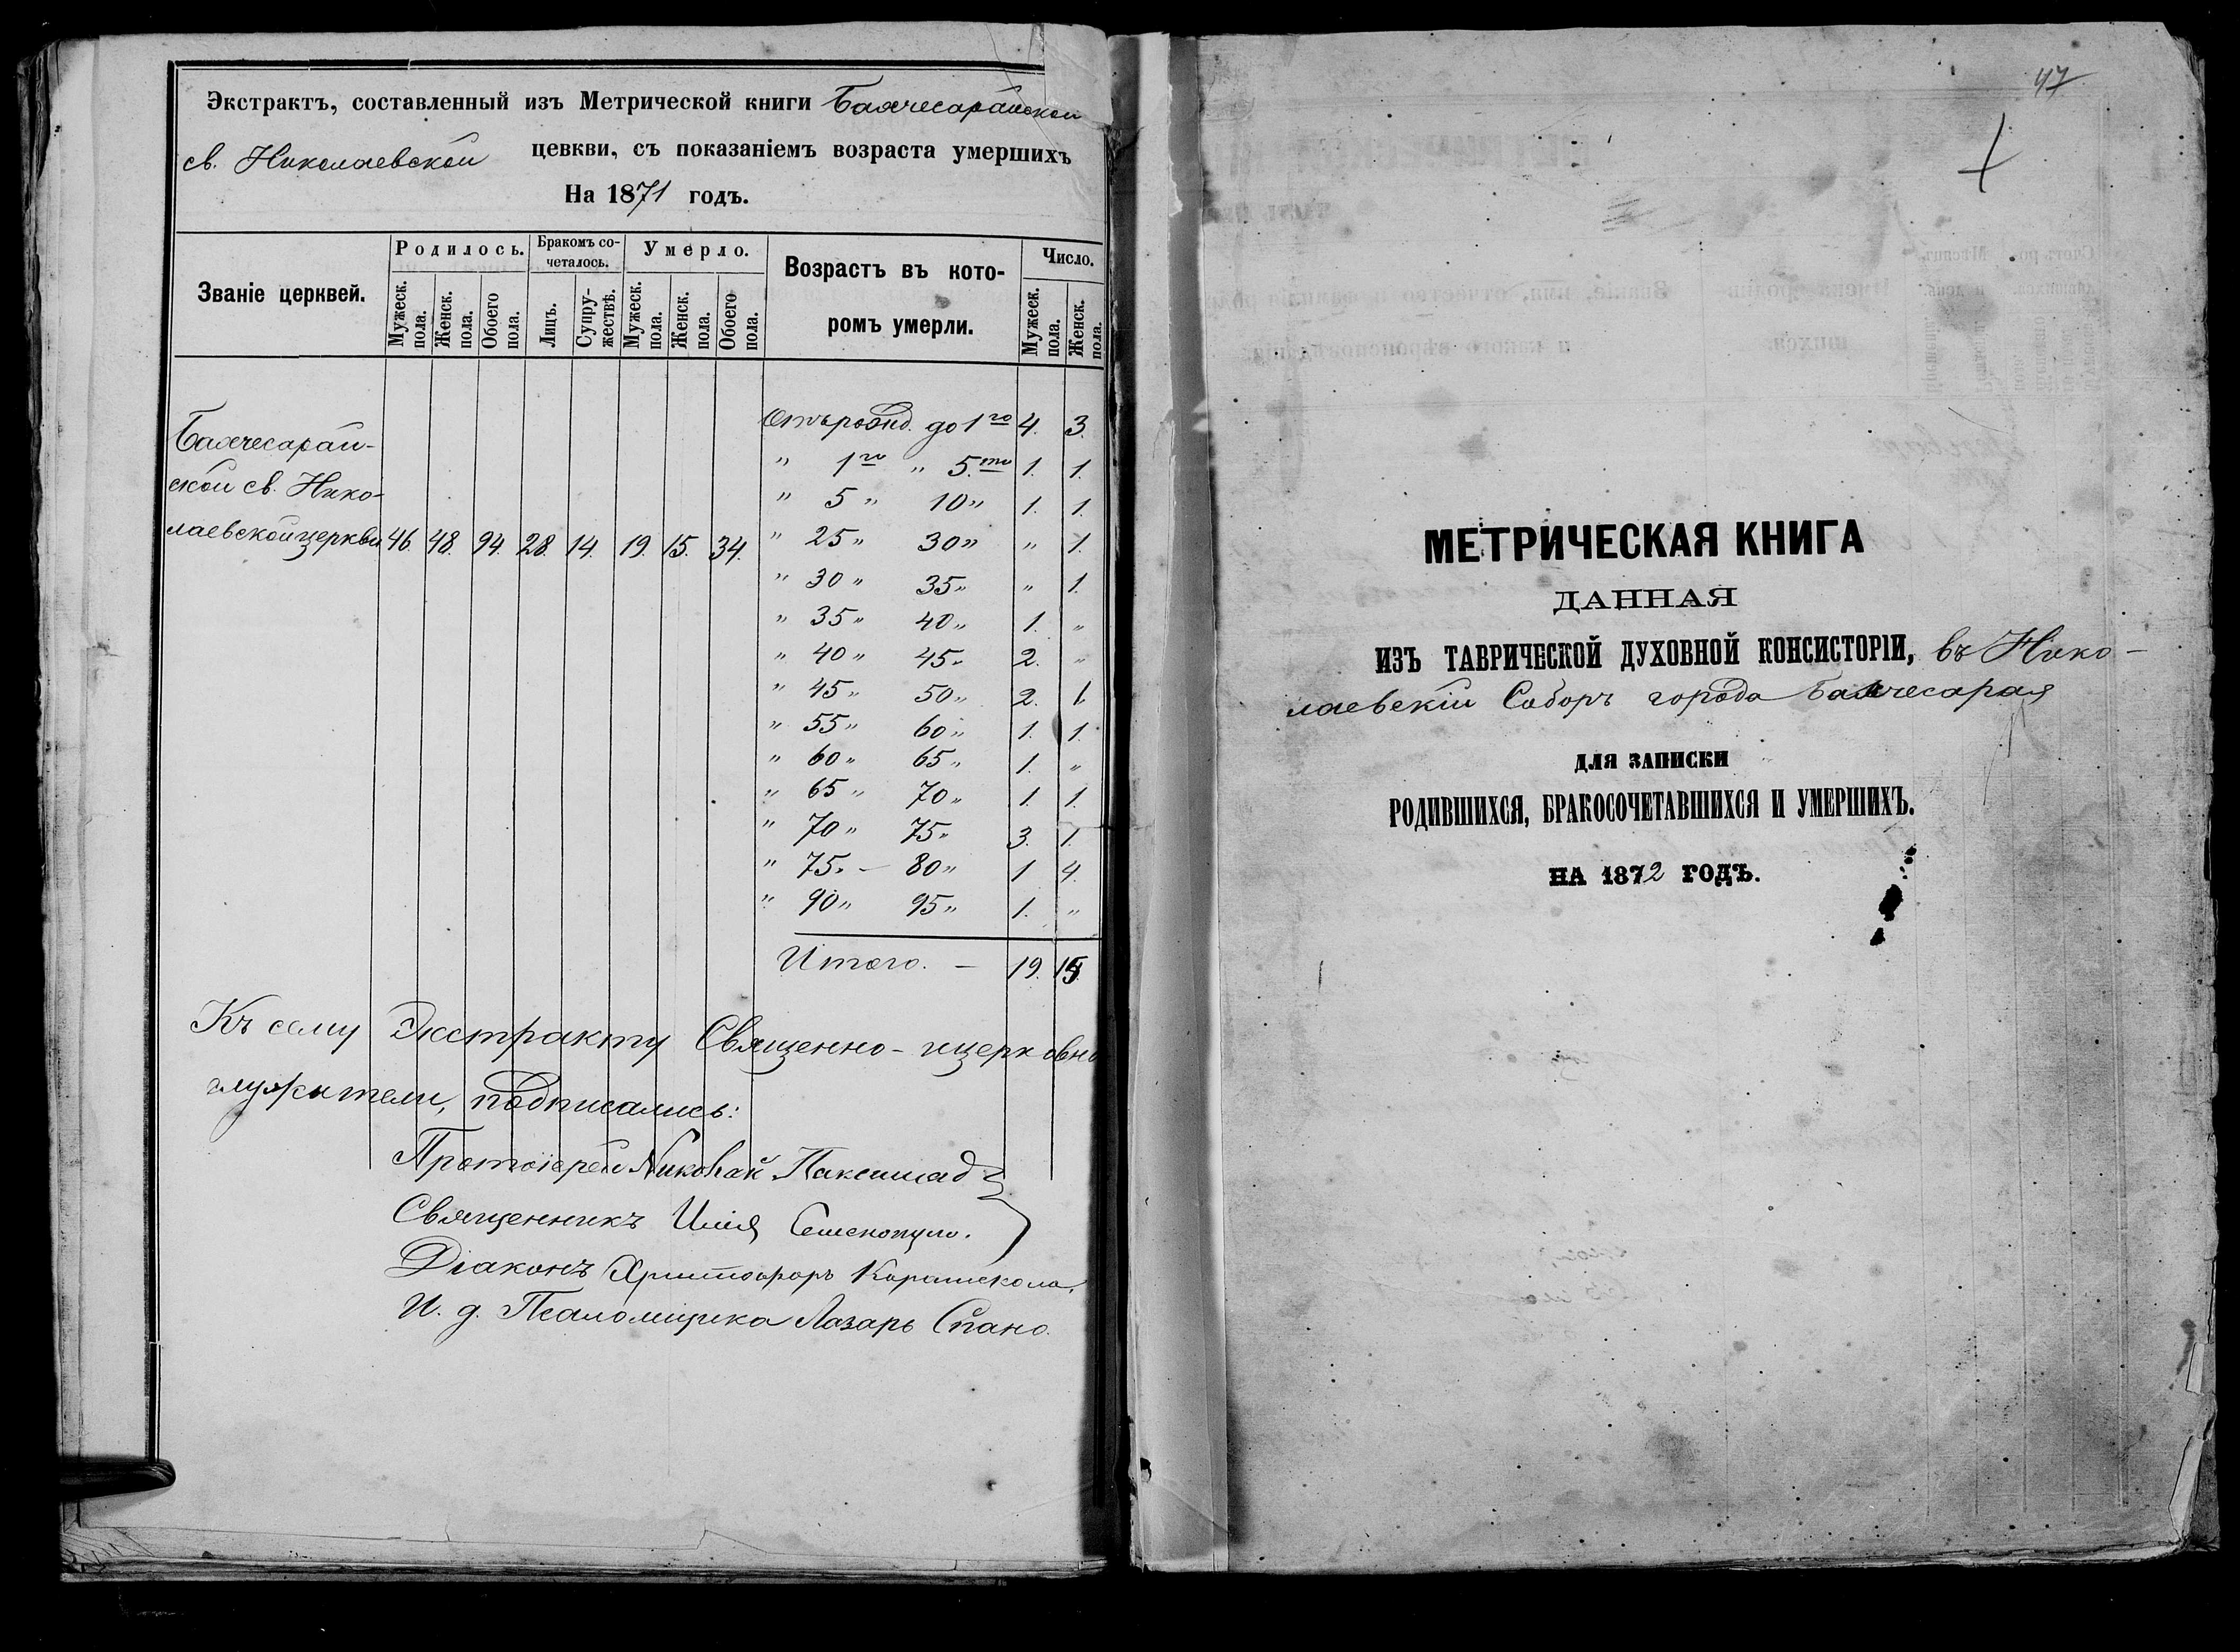 Экстрактъ, составленный изъ Метрической книги Бахчесарайской
св. Николаевской цевкви, съ показаніемъ возраста умершихъ
На 1871 годъ.
Званіе церквей.
Родилось.
Бракомъ со-
четалось.
Умерло.
Возрастъ въ кото-
ромъ умерли.
Число.
Мужеск. пола.
Женск. пола.
Обоего пола.
Лицъ.
Супру-
жествъ.
Мужеск. пола.
Женск. пола.
Обоего пола.
Мужеск. пола.
Женск. пола.
Бахчесарай-
ской св. Нико-
лаевской церкви 46. 48. 94. 28. 14. 19. 15. 34.
Отъ рожд. до 1го 4. 3.
" 1го " 5.ти 1. 1.
" 5 " 10 " 1. 1.
" 25 " 30 " " 1.
" 30 " 35 " " 1.
" 35 " 40 " 1. "
" 40 " 45 " 2. "
" 45 " 50 " 2. 1.
" 55 " 60 " 1. 1.
" 60 " 65 " 1. "
" 65 " 70 " 1. 1.
" 70 " 75 " 3. 1.
" 75 " — 80 " 1 4.
" 90 " 95 " 1. "
Итого. — 19. 15
Къ сему Экстракту Священно-церковно
служители, подписались:
Протоіерей Николай
Священникъ Илія
Діаконъ Христофоръ
И. д. Псаломщика Лазарь Спано.
47
МЕТРИЧЕСКАЯ КНИГА
ДАННАЯ
ИЗЪ ТАВРИЧЕСКОЙ ДУХОВНОЙ КОНСИСТОРІИ, въ Нико-
лаевскій Соборъ города Бахчесарая
ДЛЯ ЗАПИСКИ
РОДИВШИХСЯ, БРАКОСОЧЕТАВШИХСЯ И УМЕРШИХЪ.
НА 1872 ГОДЪ.